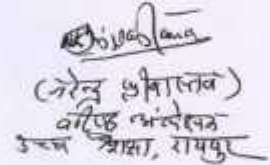 (नरेन्द्र श्रीवास्तव)
वरिष्ठ अंकेक्षक
उच्च शिक्षा, रायपुर